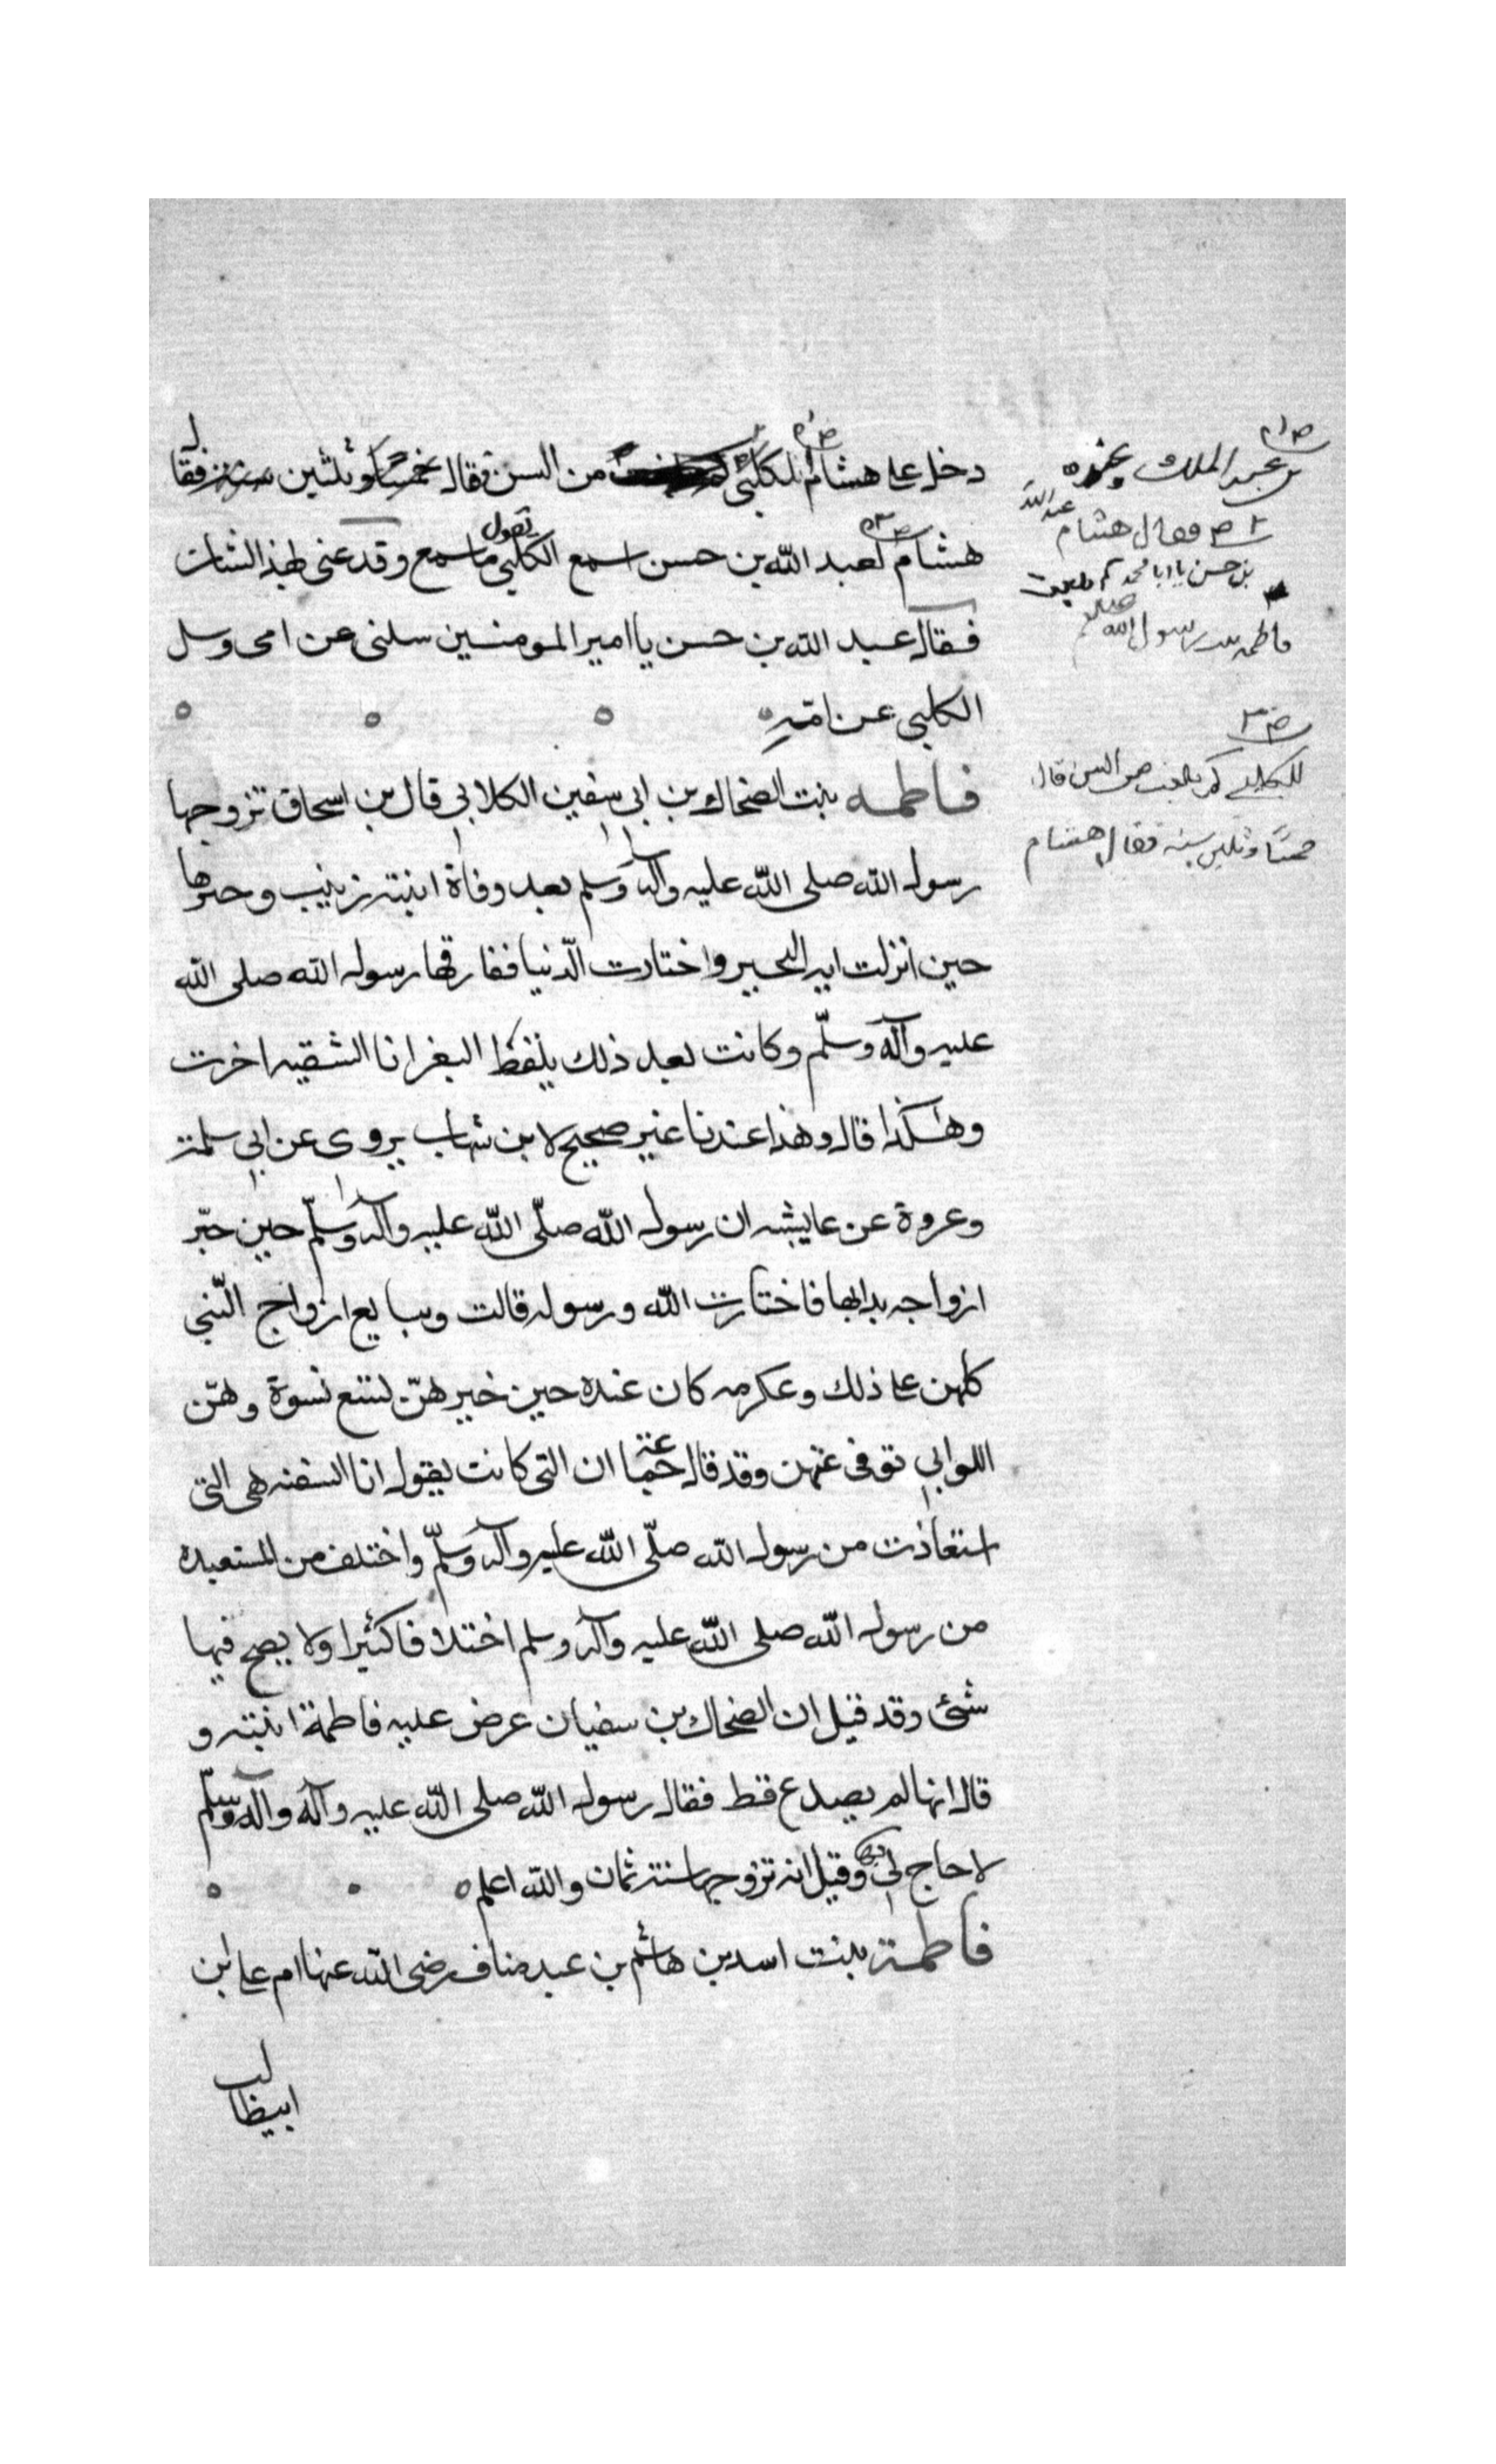 دخل على هشام للكلبى من السن فقال خمسا وثلثين سنة فقال
هشام لعبد الله بن حسن اسمع الكلبى ما تقول اسمع وقد عنى لهذا الشان
فقال عبد الله بن حسن يا امير المومنين سلنى عن امى وسل
الكلبى عن امّه
فاطمه بنت الضحاك بن ابى سفين الكلابى قال بن اسحاق تزوجها
رسول الله صلى الله عليه وآله وسلم بعد وفاة ابنته زينب وخيرها
حين انزلت ايه التخيير واختارت الدّنيا ففارقها رسول الله صلى الله
عليه وآله وسلّم وكانت بعد ذلك يلفظ البعر انا الشقيه اخرت
وهكذا قال وهذا عندنا غير صحيح لا بن شهاب يروى عن ابى سلمة
وعروة عن عايشه ان رسول الله صلّى الله عليه وآله وسلّم حين خيّر
ازواجه بدا بها فاختارت الله ورسوله قالت وببايع ازواج النّبى
كلهن على ذلك وعكرمه كان عنده حين خيرهنّ لتسع نسوة وهنّ
اللواتى توفى عنهن وقد قال جماعة ان التى كانت يقول انا السفنه هى التى
استعاذت من رسول الله صلّى الله عليه وآله وسلّم واختلف من المستعيده
من رسول الله صلى الله عليه وآله وسلم اختلافا كثيرا ولا يصح فيها
شئى وقد قيل ان الضحاك بن سفيان عرض عليه فاطمة ابنته و
قال انها لم يصدع قط فقال رسول الله صلى الله عليه وآله وآله وسلّم
لا حاج لى بها وقيل انه تزوجها سنة ثمان والله اعلم
فاطمة بنت اسد بن هاشم بن عبد مناف رضى الله عنها ام على ابن
ابيطالب
بن عبد الملك وعنده
٢ ص فقال هشام عبد الله
بن حسن يا ابا محمد كم بلغت
فاطمه بنت رسول الله صلعم
ص ٣
للكلبى كم بلغت من السن قال
خمسًا وثلثين سنه فقال هشام